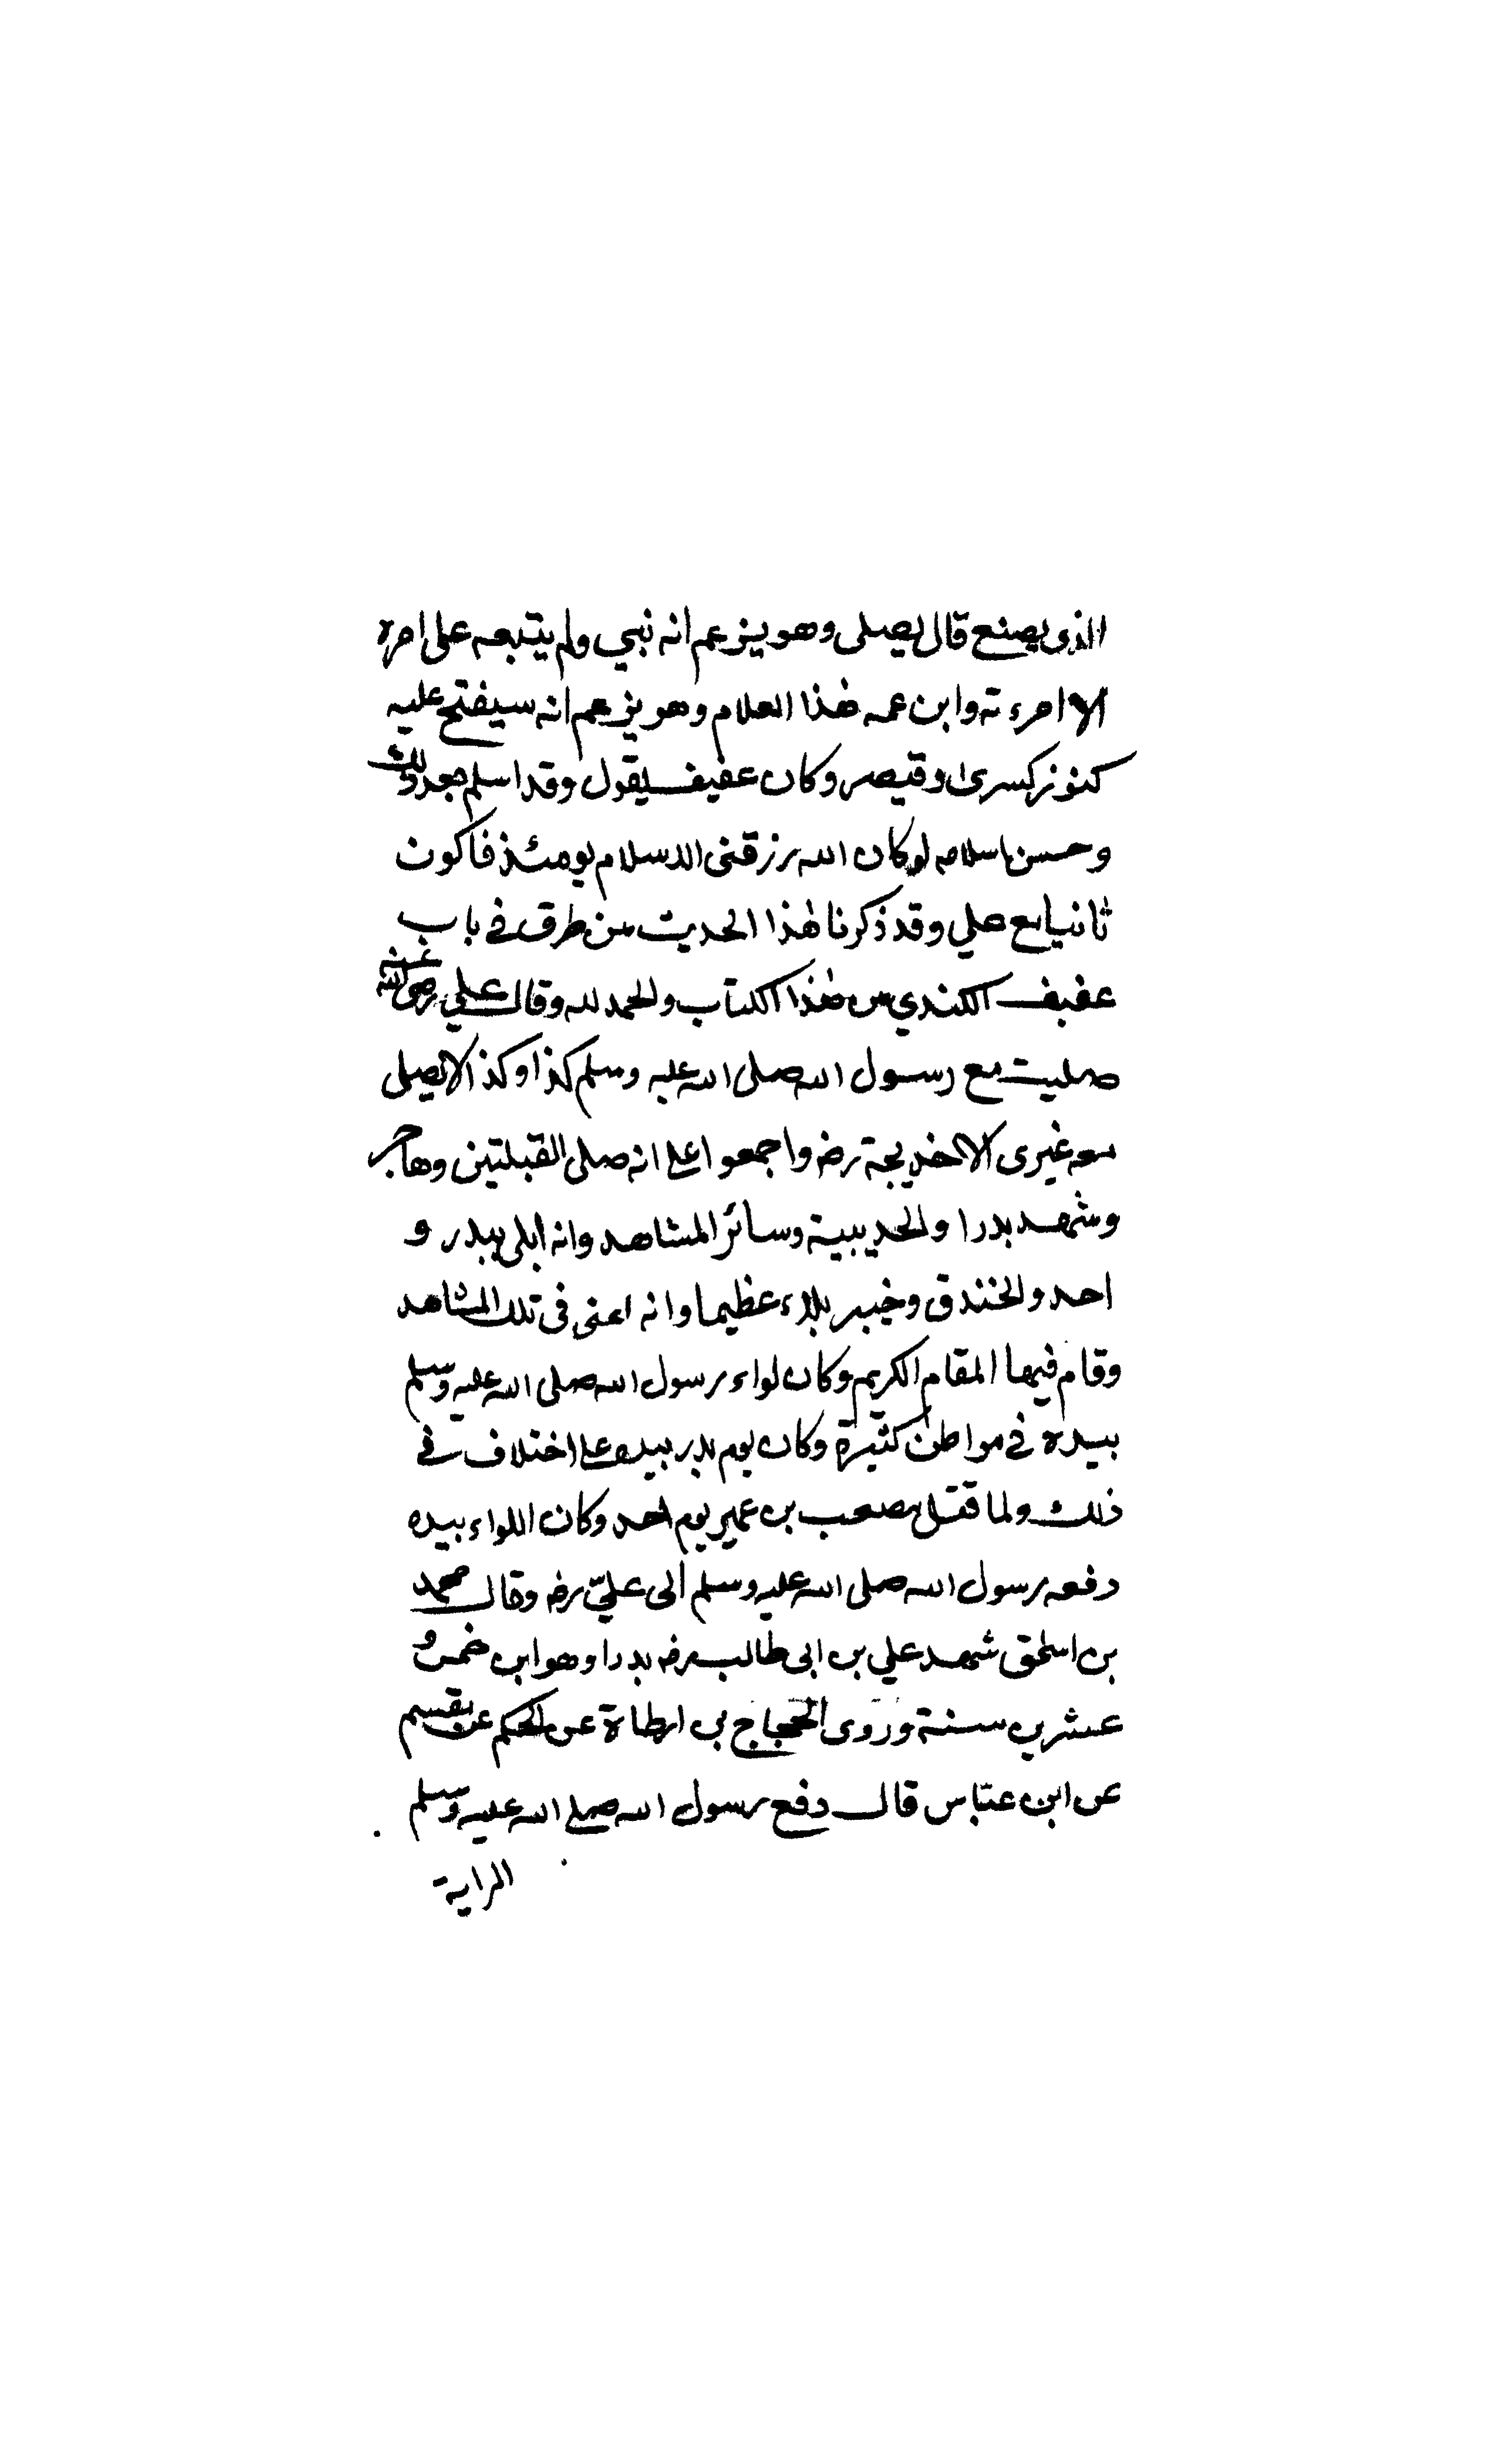 الذى يصنع قال يصلى وهو يزعم انه نبي ولم يتبعه على امره
الا امرءته وابن عمه هذا الغلام وهو يزعم انه سيفتح عليه
كنوز كسرى وقيصر وكان عفيف يقول وقد اسلم بعد ذلك
وحسن اسلامه لو كان الله رزقنى الاسلام يومئذ فاكون
ثانيا مع علي وقد ذكرنا هذا الحديث من طرق في باب
عفيف الكندي من هذا الكتاب والحمد لله وقال علي رضى الله عنه
صليت مع رسول الله صلى الله عليه وسلم كذا وكذا لا يصلى
معه غيرى الا خديجة رضه واجمعوا على انه صلى القبلتين وهاجر
وشهد بدرا والحديبية وسائر المشاهد وانه ابلى ببدر و
احد والخندق وخيبر بلاء عظيما وانه اغنى فى تلك المشاهد
وقام فيها المقام الكريم وكان لواء رسول الله صلى الله عليه وسلم
بيده في مواطن كثيرة وكان يوم بدر بيده على اختلاف في
ذلك ولما قتل مصعب بن عمير يوم احد وكان اللواء بيده
دفعه رسول الله صلى الله عليه وسلم الى عليّ رضه وقال محمد
بن اسحق شهد علي بن ابى طالب رضه بدرا وهو ابن خمس و
عشرين سنة وروى الحجاج بن ارطاة عن الحكم عن مقسم
عن ابن عبّاس قال دفع رسول الله صلى الله عليه وسلم
الراية